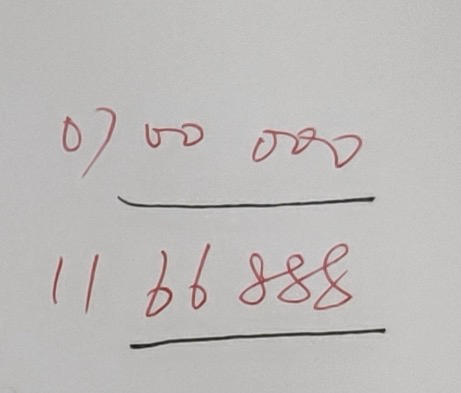 07 00 000
11 66 888